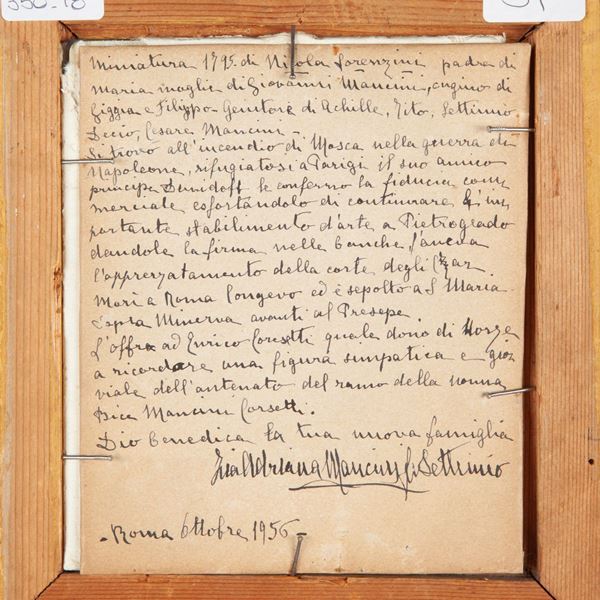 350-18
Miniatura 1795 di Nicola Lorenzini padre di
Maria moglie di Giovanni Mancini, cugino di
Giggia e Filippo Genitore di Achille, Tito, Settimio
Decio, Cesare Mancini -
Si trovò all'incendio di Mosca nella guerra di
Napoleone, rifugiatosi a Parigi il suo amico
principe Demidoff le conferrò la fiducia com
merciale esfortandolo di continuare l'im
portante stabilimento d'arte a Pietrogrado
dandole la firma nelle banche,
l'apprezzatamento della corte degli Czar.
Morì a Roma Longevo ed è sepolto a S. Maria
Sopra Minerva avanti al Presepe.
L'offro ad Enrico Corsetti quale dono di Nozze
a ricordare una figura simpatica e gio
viale dell'antenato del ramo della nonna
Bice Mancini Corsetti.
Dio benedica la tua nuova famiglia
Zia Adriana Mancini Settimio
- Roma Ottobre 1956 -